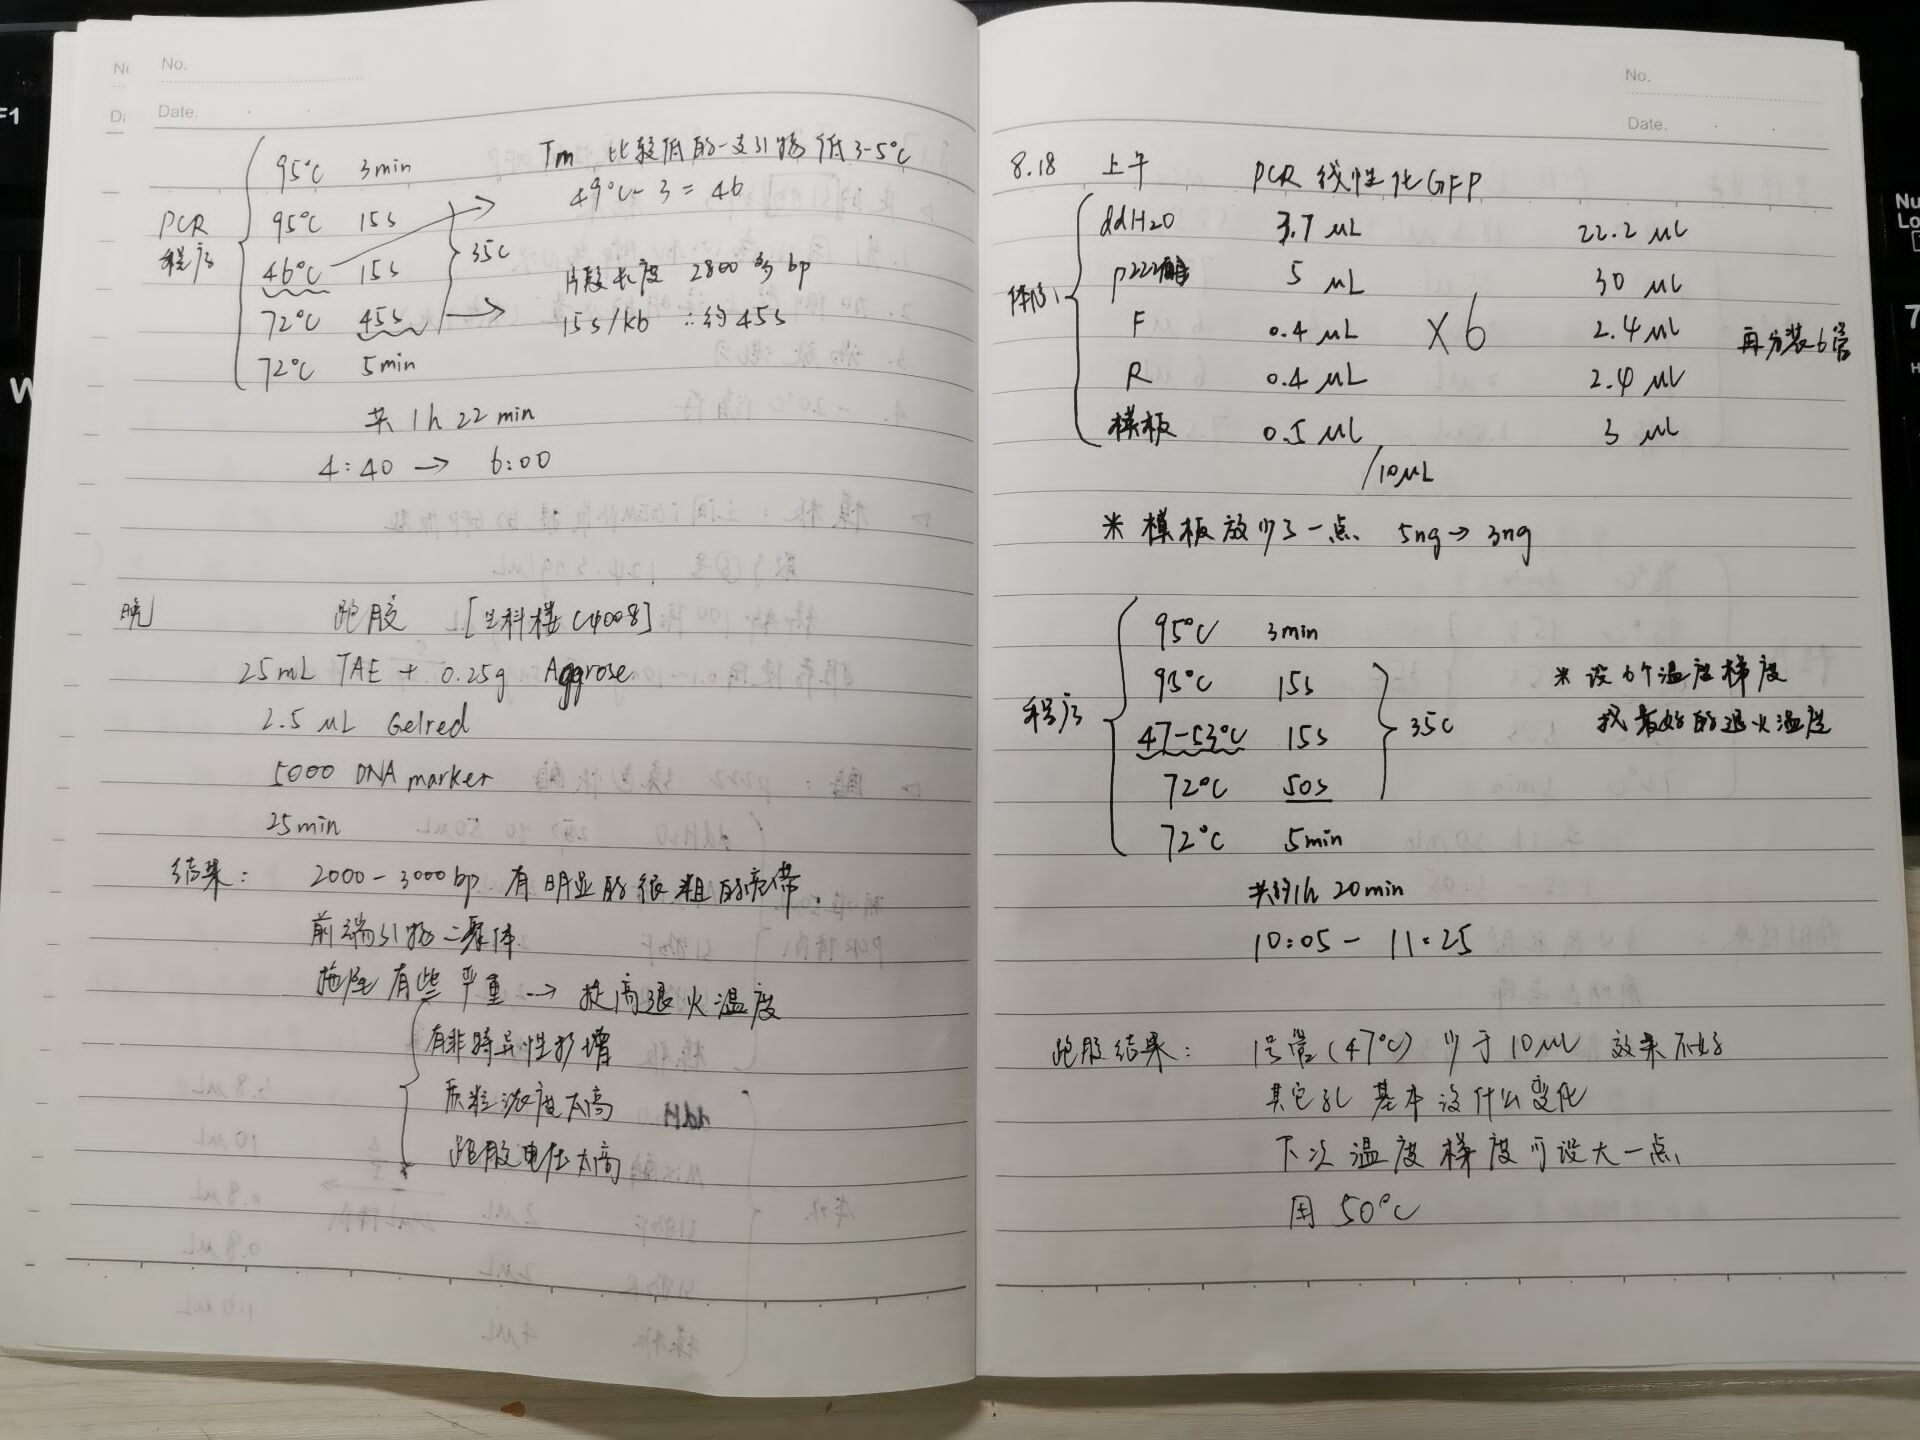 No.
Date.
PCR
程序
95°C 3min
95°C 15s
46°C 15s
72°C 45s
72°C 5min
35c
Tm 比较低的一支引物低3-5°C
49°C - 3 = 46
片段长度 2800 多 bp
15s/kb ∴约45s
共 1h 22 min
4:40 → 6:00
晚 跑胶 [生科楼C4008]
25mL TAE + 0.25g Aggrose
2.5 μL Gelred
5000 DNA marker
25min
结果: 2000-3000bp 有明显的很粗的亮带.
前端引物二聚体.
拖尾有些严重 → 提高退火温度
有非特异性扩增
质粒浓度太高
跑胶电压太高
No.
Date.
8.18 上午 PCR 线性化GFP
体系
ddH2O 3.7 μL 22.2 μL
p222酶 5 μL 30 μL
F 0.4 μL ×6 2.4 μL 再分装6管
R 0.4 μL 2.4 μL
模板 0.5 μL 3 μL
/10μL
※ 模板放少了一点 5ng → 3ng
程序
95°C 3min
95°C 15s
47-53°C 15s
72°C 50s
72°C 5min
35c
※ 设6个温度梯度
找最好的退火温度
共约1h 20min
10:05 - 11:25
跑胶结果: 1号管(47°C) 少于10μL 效果不好
其它孔 基本没什么变化
下次温度梯度可设大一点
用 50°C